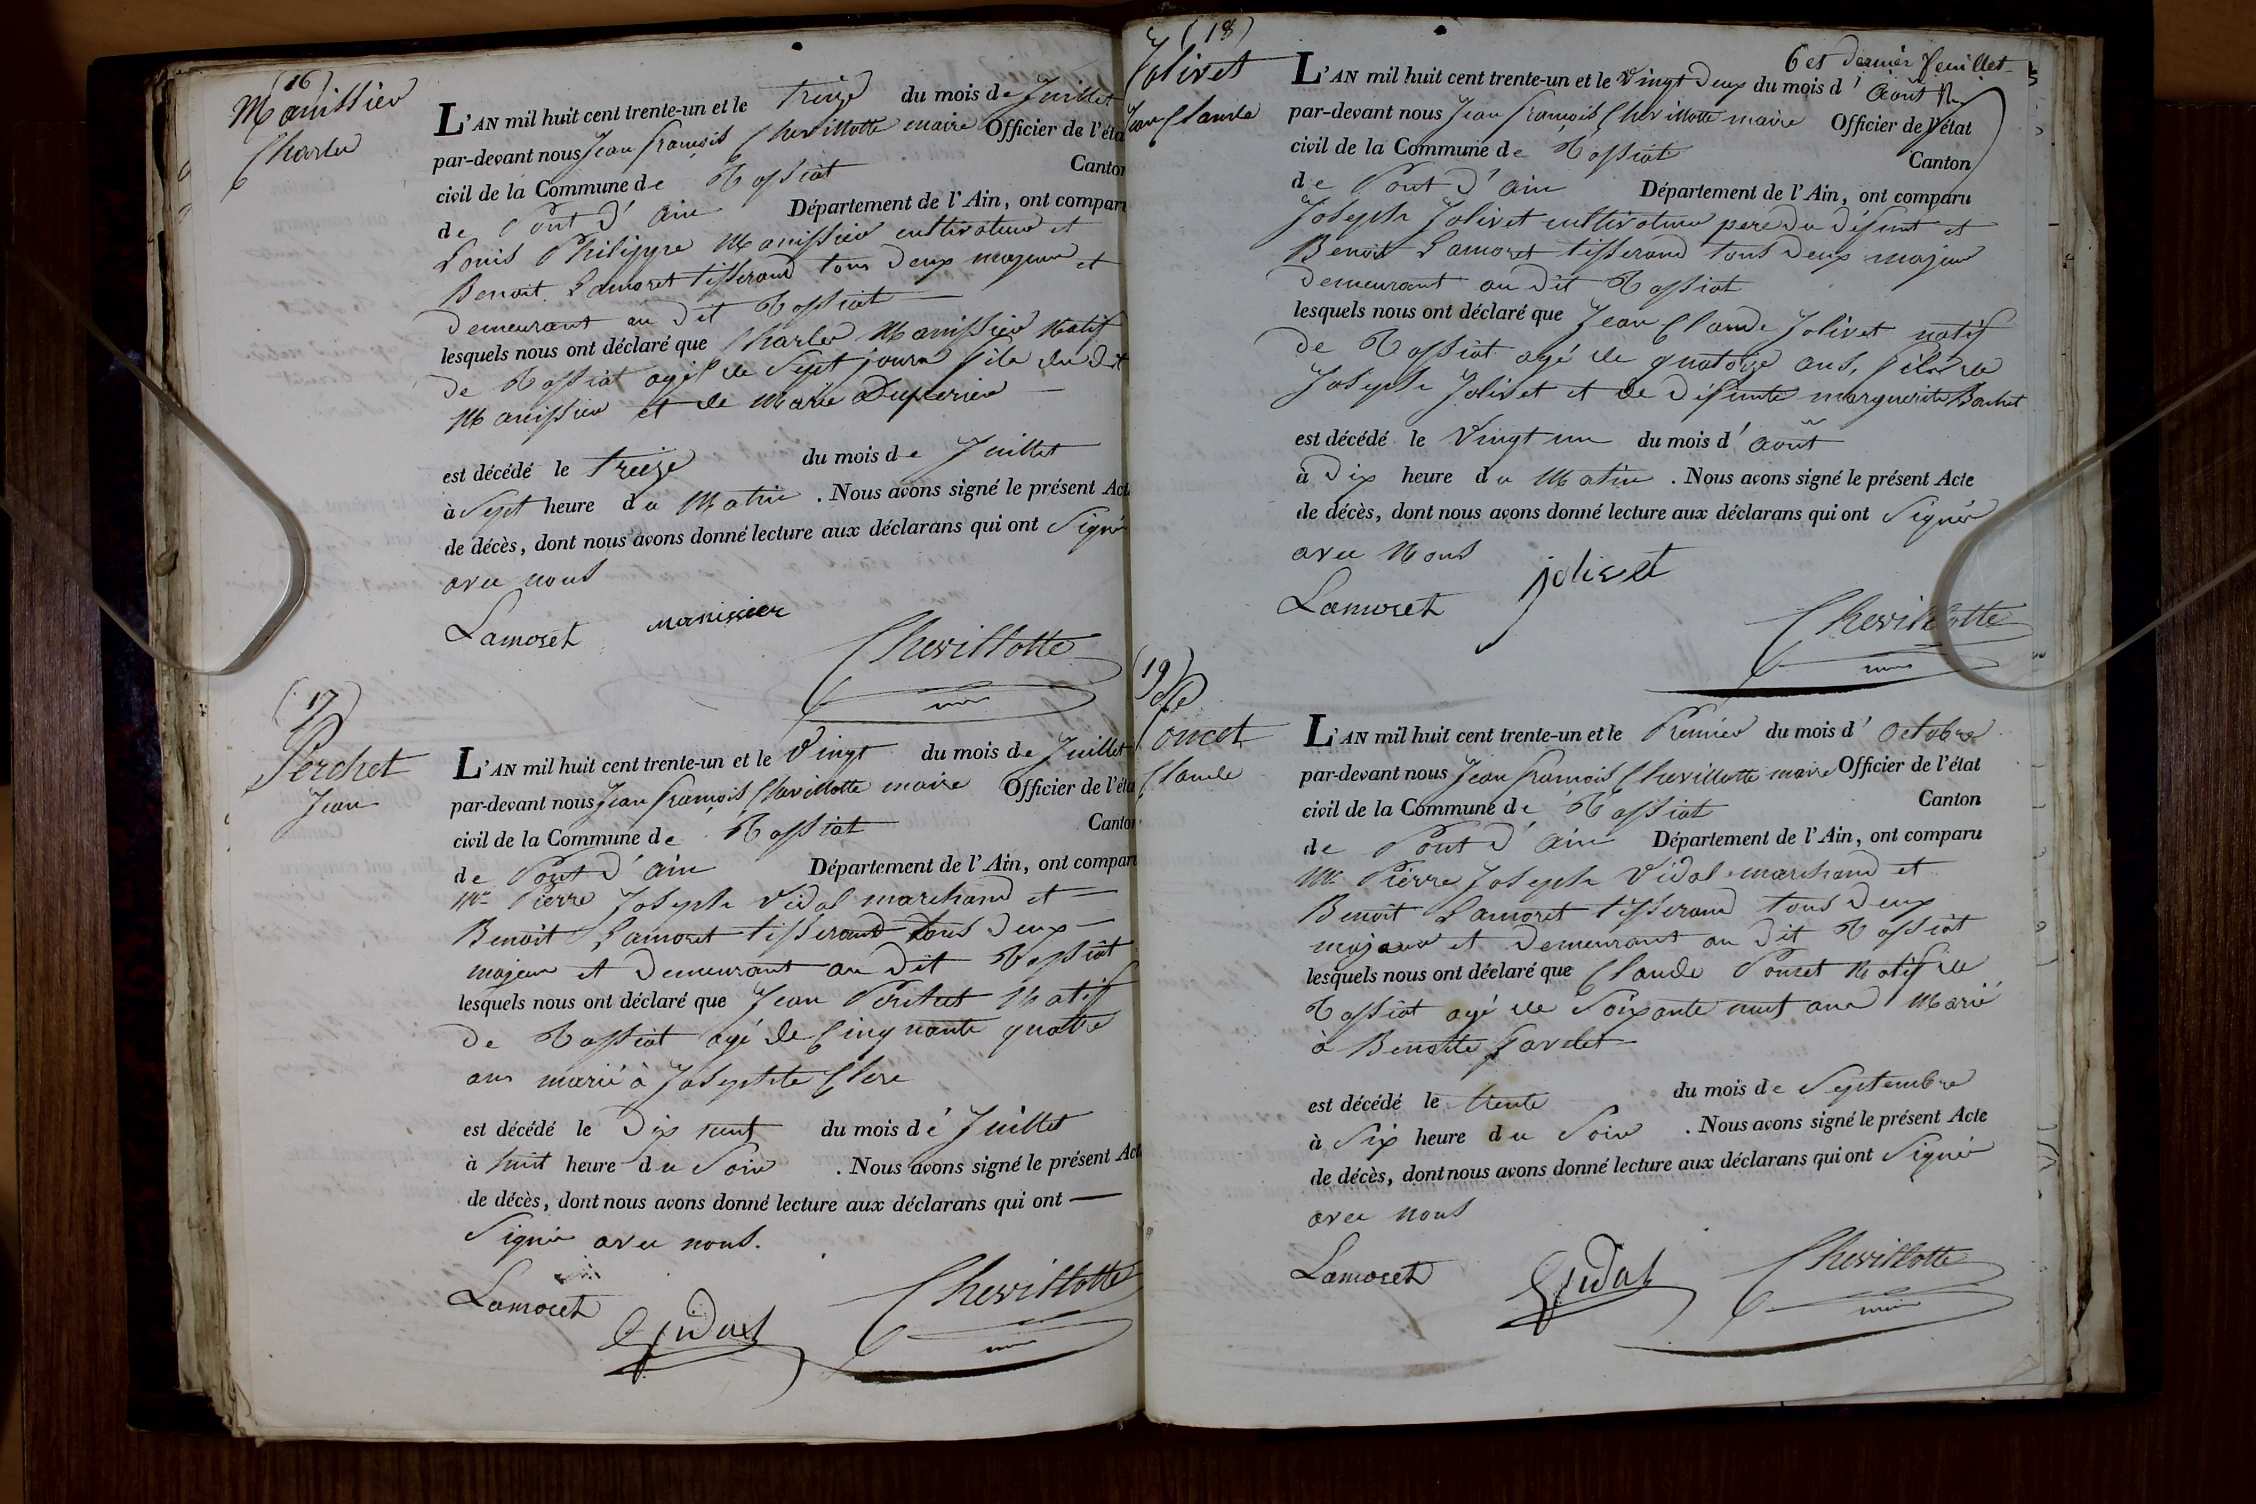 (16)
Manissier
Charles
L'AN mil huit cent trente-un et le treize du mois de Juillet
par-devant nous Jean françois Chevillotte maire Officier de l'éta
civil de la Commune de Rossiat Canton
de Pont d'ain Département de l'Ain, ont comparu
Louis Philippe Manissier cultivateur et
Benoit Lamoret tisserand tous deux majeur et
demeurant au dit Rossiat
lesquels nous ont déclaré que Charles Manissier Natif
de Rossiat agé de Sept jours fils du dit
Manissier et de Marie Duperier
est décédé le treize du mois de Juillet
à Sept heure du Matin . Nous avons signé le présent Acte
de décès, dont nous avons donné lecture aux déclarans qui ont Signé
avec nous
Lamoret manissier
Chevillotte
(17)
Perchet
Jean
L'AN mil huit cent trente-un et le Vingt du mois de Juillet
par-devant nous Jean françois Chevillotte maire Officier de l'éta
civil de la Commune de Rossiat Canton
de Pont d'ain Département de l'Ain, ont comparu
Mr Pierre Joseph Vidal marchand et
Benoit Lamoret tisserand tous deux
majeur et demeurant au dit Rossiat
lesquels nous ont déclaré que Jean Perchet Natif
de Rossiat agé de Cinquante quatre
ans marié à Josephte Clerc
est décédé le Dix neuf du mois de Juillet
à huit heure du Soir . Nous avons signé le présent Acte
de décès, dont nous avons donné lecture aux déclarans qui ont
Signé avec nous.
Lamoret Vidal Chevillotte
6 et dernier feuillet
(18)
Jolivet
Jean Claude
L'AN mil huit cent trente-un et le Vingt deux du mois d'Août
par-devant nous Jean françois Chevillotte maire Officier de l'état
civil de la Commune de Rossiat Canton
de Pont d'ain Département de l'Ain, ont comparu
Joseph Jolivet cultivateur pere du défunt et
Benoit Lamoret tisserand tous deux majeur
demeurant au dit Rossiat
lesquels nous ont déclaré que Jean Claude Jolivet natif
de Rossiat agé de quatorze ans, fils de
Joseph Jolivet et de défunte marguerite Bouchet
est décédé le Vingt un du mois d'août
à Dix heure du Matin . Nous avons signé le présent Acte
de décès, dont nous avons donné lecture aux déclarans qui ont Signés
avec Nous
Lamoret jolivet
Chevillotte
19
Poncet
Claude
L'AN mil huit cent trente-un et le Premier du mois d'Octobre
par-devant nous Jean françois Chevillotte maire Officier de l'état
civil de la Commune de Rossiat Canton
de Pont d'ain Département de l'Ain, ont comparu
Mr Pierre Joseph Vidal marchand et
Benoit Lamoret tisserand tous deux
majeur et demeurant au dit Rossiat
lesquels nous ont déclaré que Claude Poncet Natif de
Rossiat agé de Soixante neuf ans Marié
à Benoite Gardet
est décédé le trente du mois de Septembre
à Six heure du Soir . Nous avons signé le présent Acte
de décès, dont nous avons donné lecture aux déclarans qui ont Signé
avec nous
Lamoret Vidal Chevillotte